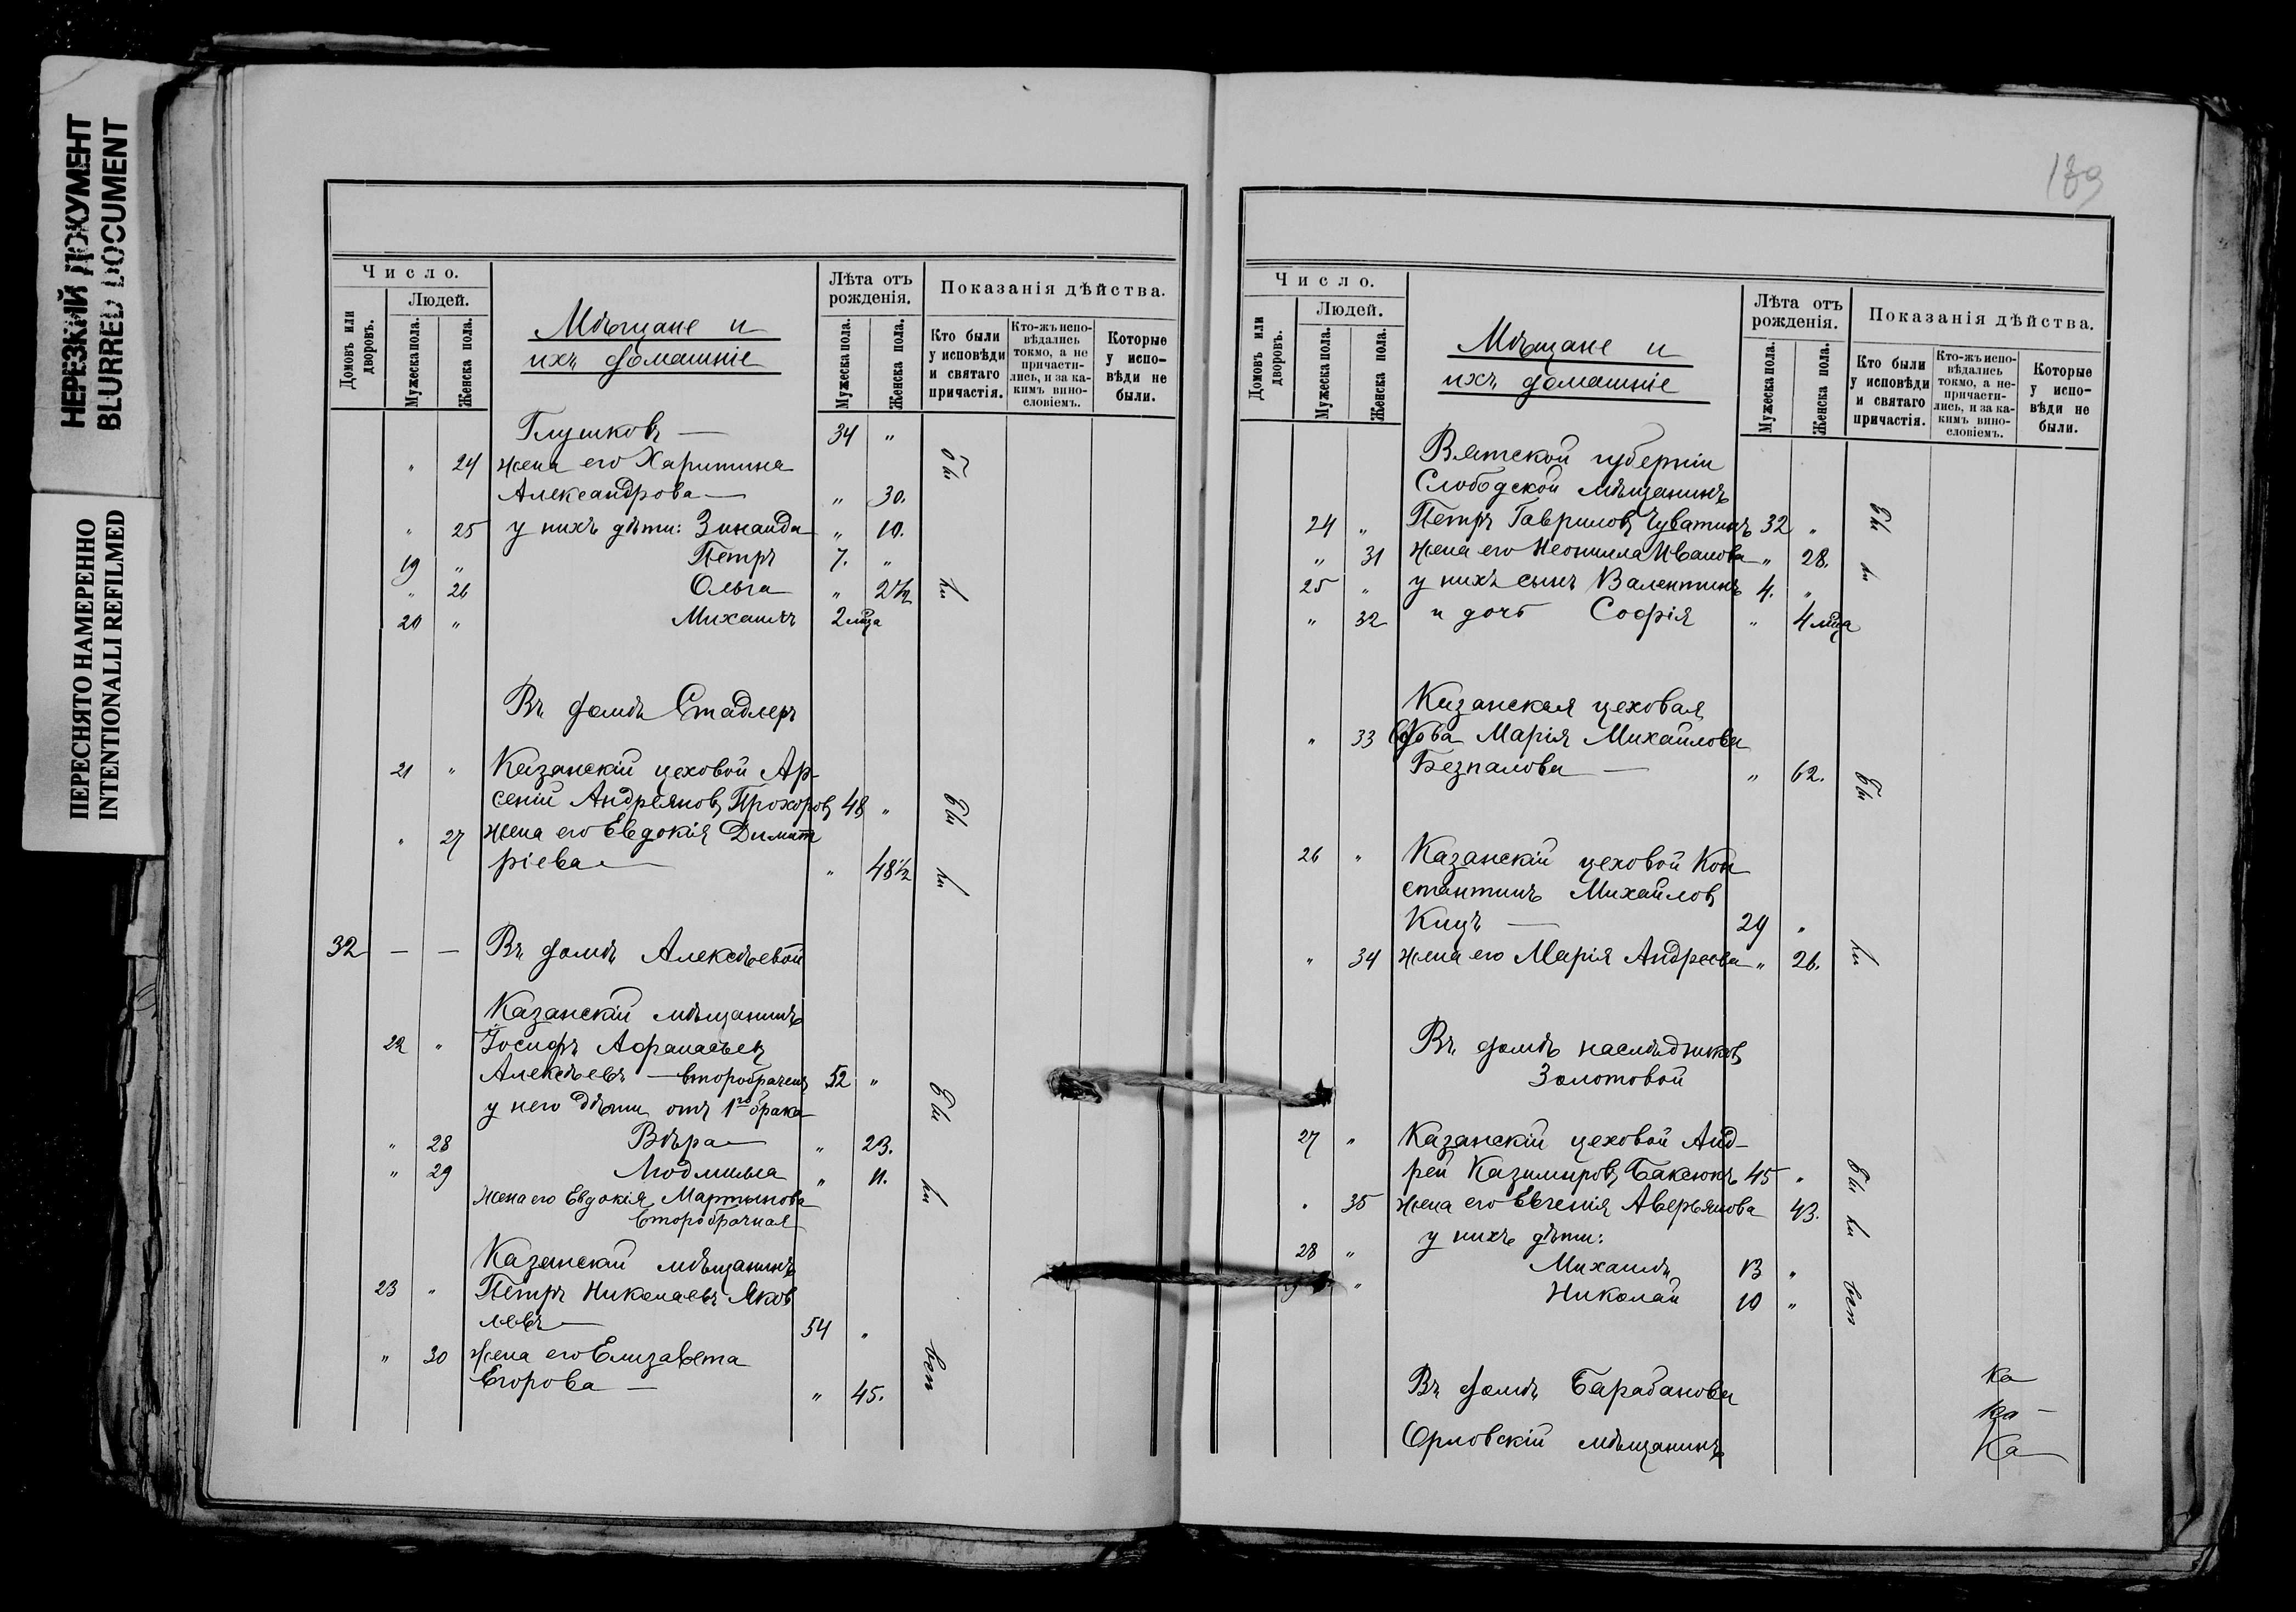 НЕРЕЗКИЙ ДОКУМЕНТ
BLURRED DOCUMENT
ПЕРЕСНЯТО НАМЕРЕННО
INTENTIONALLI REFILMED
Число.
Людей.
Домовъ или дворовъ.
Мужеска пола.
Женска пола.
Мѣщане и
ихъ домашніе
Лѣта отъ рожденія.
Мужеска пола.
Женска пола.
Показанія дѣйства.
Кто были у исповѣди и святаго причастія.
Кто-жъ исповѣдались токмо, а не причастились, и за какимъ винословіемъ.
Которые у исповѣди не были.
Глушковъ — 34 "
" 24 жена его Харитина
Александрова — " 30.
" 25 у нихъ дѣти: Зинаида " 10.
19 " Петръ 7. "
" 26 Ольга " 2½
20 " Михаилъ 2 мца
бы
ли
Въ домѣ Стадлеръ
21 " Казанскій цеховой Ар-
сеній Андреяновъ Прохоровъ 48 "
" 27 жена его Евдокія Димит
ріева — " 48½
бы
ли
32 — — Въ домѣ Алексѣевой
Казанскій мѣщанинъ
22 " Іосифъ Афанасьевъ
Алексѣевъ — второбраченъ 52 "
у него дѣти отъ 1го брака
" 28 Вѣра — " 23.
" 29 Людмила " 11.
жена его Евдокія Мартынова
второбрачная
бы
ли
Казанскій мѣщанинъ
23 " Петръ Николаевъ Яков
левъ — 54 "
" 30 жена его Елизавета
Егорова — " 45.
189
Число.
Людей.
Домовъ или дворовъ.
Мужеска пола.
Женска пола.
Мѣщане и
ихъ домашніе
Лѣта отъ рожденія.
Мужеска пола.
Женска пола.
Показанія дѣйства.
Кто были у исповѣди и святаго причастія.
Кто-жъ исповѣдались токмо, а не-причастились, и за какимъ винословіемъ.
Которые у исповѣди не были.
Вятской губерніи
Слободской мѣщанинъ
24 " Петръ Гавриловъ Чуватинъ 32 "
" 31 жена его Неонилла Иванова " 28.
25 " у нихъ сынъ Валентинъ 4. "
" 32 и дочь Софія " 4 мца
бы
ли
Казанская цеховая
" 33 вдова Марія Михайлова
Безпалова — " 62.
бы
26 " Казанскій цеховой Кон
стантинъ Михайловъ
Кицъ — 29 "
" 34 жена его Марія Андреева " 26.
ли
Въ домѣ наслѣдниковъ
Золотовой
27 " Казанскій цеховой Анд-
рей Казимировъ Баксюкъ 45 "
" 35 жена его Евгенія Аверьянова 43.
у нихъ дѣти:
28 " Михаилъ 13 "
" Николай 10 "
бы
ли
Въ домѣ Барабанова
Орловскій мѣщанинъ
ка
ка —
Ка